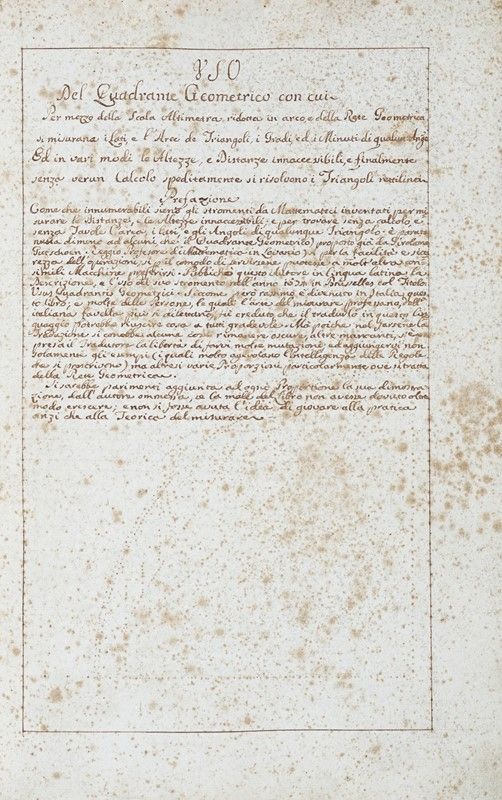 VSO
Del Quadrante Geometrico con cui
Per mezzo della Scala Altimetra, ridotta in arco, e della Rete Geometrica
si misurano i Lati, e l'Aree de Triangoli, i Gradi, ed i Minuti di qualun Ango
Ed in vari modi le Altezze, e Distanze innaccessibili, e finalmente
senza verun Calcolo speditamente si risolvono i Triangoli rettilinei
Prefazione
Come che innumerabili sieno gli stromenti da Mattematici inventati per mi
surare le Distanze, e le Altezze innaccessibili, e per trovare senza calcolo, e
senza Tavole l'area, i lati, e gli Angoli di qualunque Triangolo; è
nulla di meno ad alcuni che il Quadrante Geometrico proposto già da Girolamo
Regio Professore di Matematica in Lovanio, per la facilità e sicu
rezza dell'operazioni, si per il comodo di servirsene a molt'altre con
simili Macchine preferirsi. Pubblicò questo Autore in lingua latina la
Descrizione, e l'Uso del suo stromento nell'anno in Brusselles col Titolo
Usus Quadrantis Geometrici. Siccome però rarissimo è divenuto in Italia ques
to libro, e molte delle persone, le quali l'arte del misurare professano, dell'
italiana favella più si dilettano, si è creduto che il tradurlo in questo lin
guaggio potrebbe riuscire cosa a tutti gradevole. Ma poiche nel farsene la
Traduzione si conobbe alcune cose rimanere oscure, altre mancanti, s'è
presa il Traduttore la libertà di farvi molte mutazioni, ed aggiungervi non
solamente gli esempi (i quali molto agevolano l'intelligenza delle Regole
che si prescrivono) ma altresi varie Proporzioni particolarmente ove si tratta
della Rete Geometrica.
Si sarebbe parimenti aggiunta ad ogni Proportione la sua dimostra
zione, dall'autore ommessa, se la mole del libro non avesse dovuto oltre
modo crescere; e non si fosse avuta l'idea di giovare alla pratica
anzi che alla Teorica del misurare